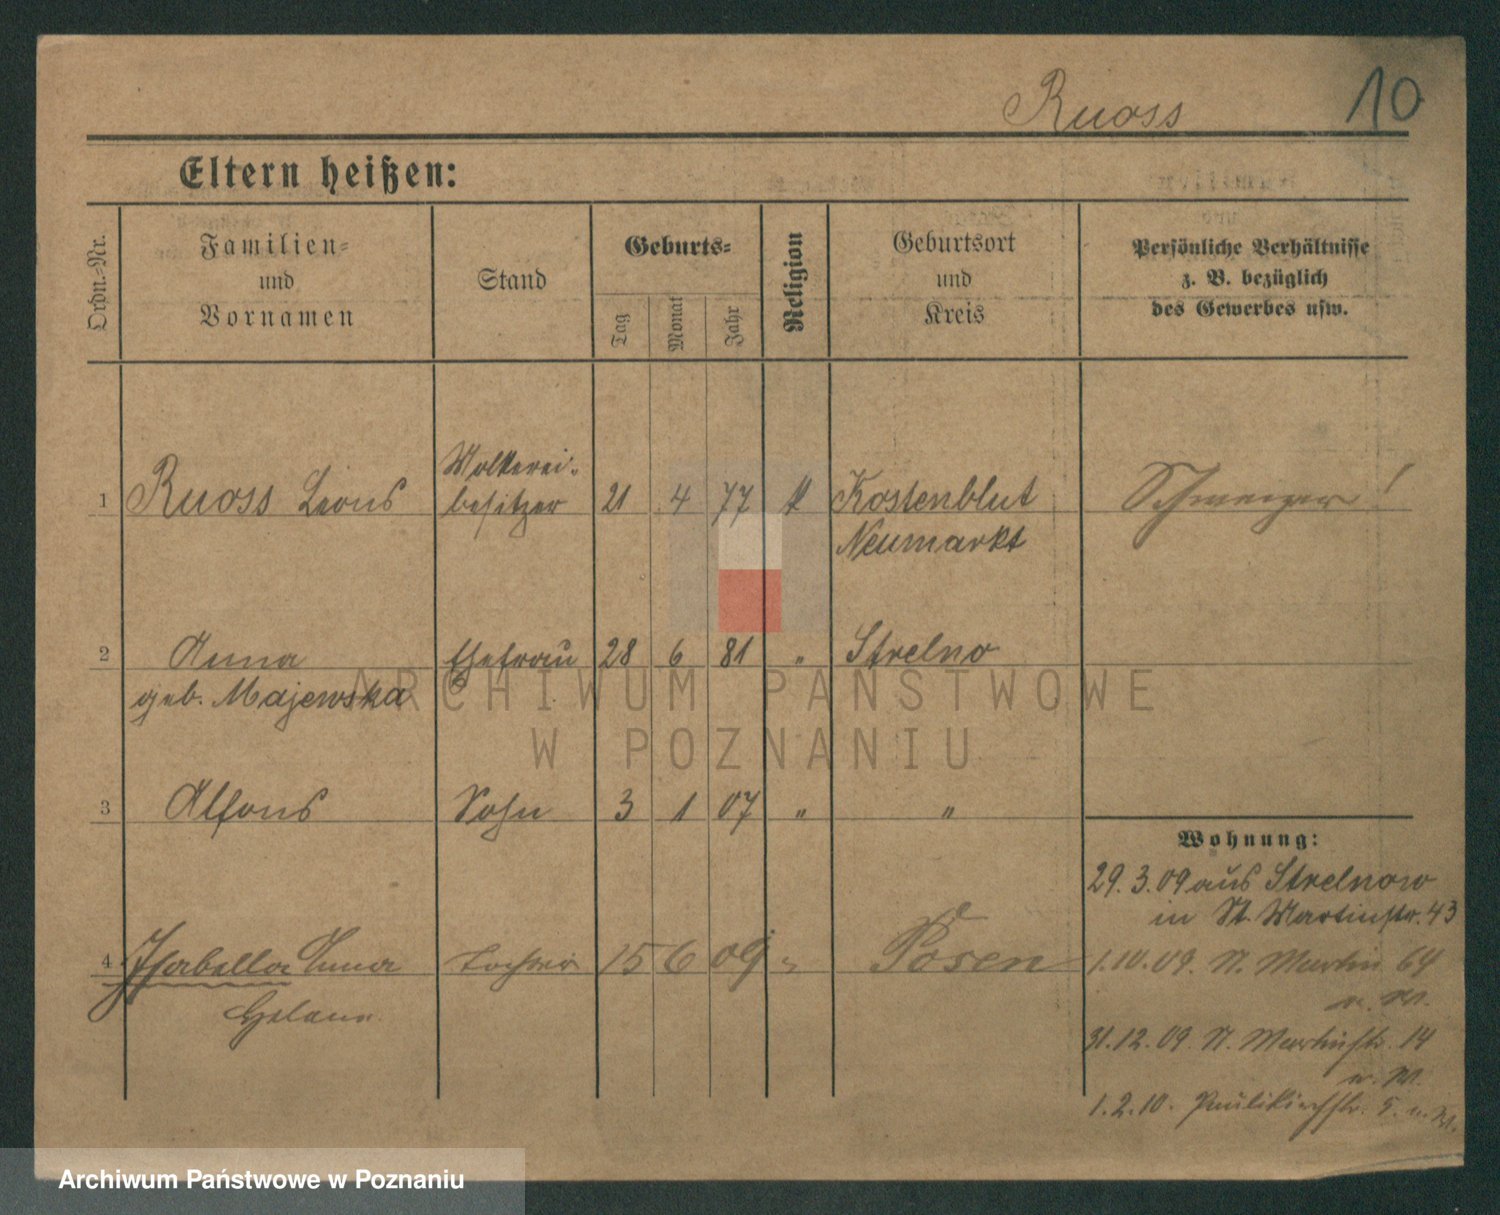 Ruoss 10
Eltern heißen:
Ordn.-Nr.
Familien-
und
Vornamen
Stand
Geburts-
Tag
Monat
Jahr
Religion
Geburtsort
und
Kreis
Persönliche Verhältnisse
z. B. bezüglich
des Gewerbes usw.
Molkerei-
1 Ruoss Leons besitzer 21 4 77 Kostenblut Schweizer!
Neumarkt
2 Anna Ehefrau 28 6 81 " Strelno
geb. Majewska
ARCHIWUM PAŃSTWOWE
W POZNANIU
3 Alfons Sohn 3 1 07 " "
Wohnung:
29.3.09 aus Strelnow
in St. Martinstr. 43
4 Isabella Anna Tochter 15 6 09 " Posen
1.10.09. St. Martin 64
31.12.09 St. Martinstr. 14
1.2.10. Paulikirchstr. 5.
Archiwum Państwowe w Poznaniu